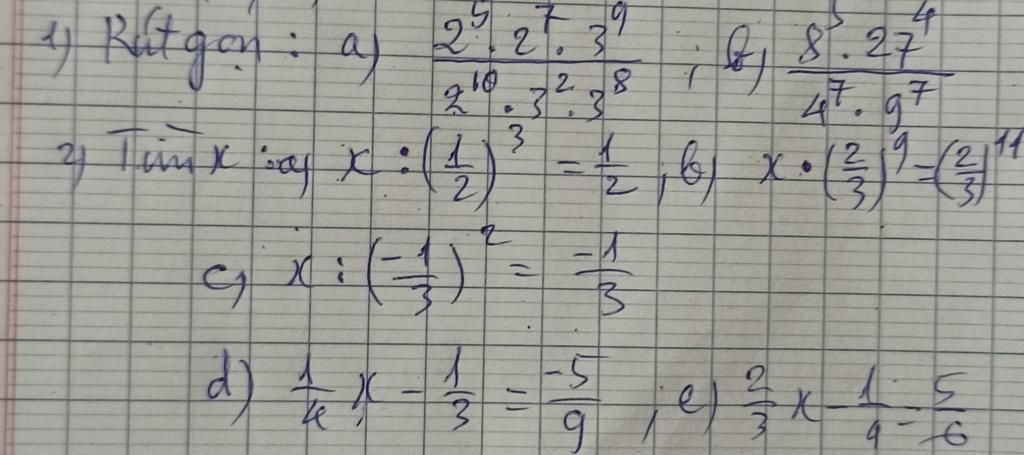 1) Rút gọn : a) \frac{2^5 . 2^7 . 3^9}{2^{10} . 3^2 . 3^8} ; b) \frac{8^5 . 27^4}{4^7 . 9^7}
2) Tìm x : a) x : (\frac{1}{2})^3 = \frac{1}{2} , b) x . (\frac{2}{3})^9 = (\frac{2}{3})^{11}
c) x : (\frac{-1}{3})^2 = \frac{-1}{3}
d) \frac{1}{4} x - \frac{1}{3} = \frac{-5}{9} , e) \frac{2}{3} x - \frac{1}{9} = \frac{5}{6}